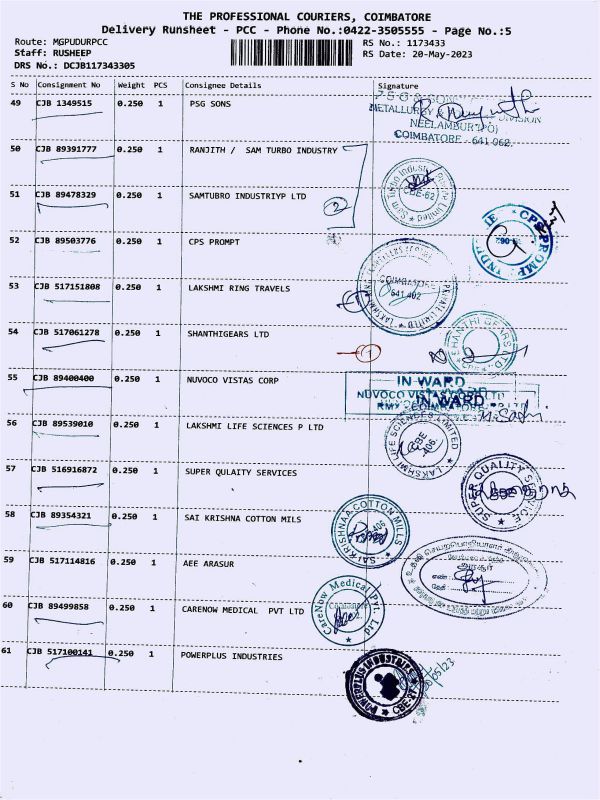 THE PROFESSIONAL COURIERS, COIMBATORE
Delivery Runsheet - PCC - Phone No.:0422-3505555 - Page No.:5
Route: MGPUDURPCC RS No.: 1173433
Staff: RUSHEEP RS Date: 20-May-2023
DRS No.: DCJB117343305
S No Consignment No Weight PCS Consignee Details Signature
49 CJB 1349515 0.250 1 PSG SONS
METALLURGY & DIVISION
NEELAMBUR (PO)
COIMBATORE - 641 062.
50 CJB 89391777 0.250 1 RANJITH / SAM TURBO INDUSTRY
51 CJB 89478329 0.250 1 SAMTUBRO INDUSTRIYP LTD
2
Sam Turbo Industry Private Limited
CBE-62
52 CJB 89503776 0.250 1 CPS PROMPT
CPS PROMPT
53 CJB 517151808 0.250 1 LAKSHMI RING TRAVELS
COIMBATORE
641 402
PRIVATE LIMITED
54 CJB 517061278 0.250 1 SHANTHIGEARS LTD
1
SHANTHI GEARS LTD
55 CJB 89400400 0.250 1 NUVOCO VISTAS CORP
IN WARD
NUVOCO VISTAS
IN WARD
56 CJB 89539010 0.250 1 LAKSHMI LIFE SCIENCES P LTD
LAKSHMI LIFE SCIENCES LIMITED
CBE
57 CJB 516916872 0.250 1 SUPER QULAITY SERVICES
SUPER QUALITY SERVICE
58 CJB 89354321 0.250 1 SAI KRISHNA COTTON MILS
SAI KRISHNAA COTTON MILLS
59 CJB 517114816 0.250 1 AEE ARASUR
அரசூர்
60 CJB 89499858 0.250 1 CARENOW MEDICAL PVT LTD
CareNow Medical Pvt. Ltd
61 CJB 517100141 0.250 1 POWERPLUS INDUSTRIES
POWERPLUS INDUSTRIES
CBE